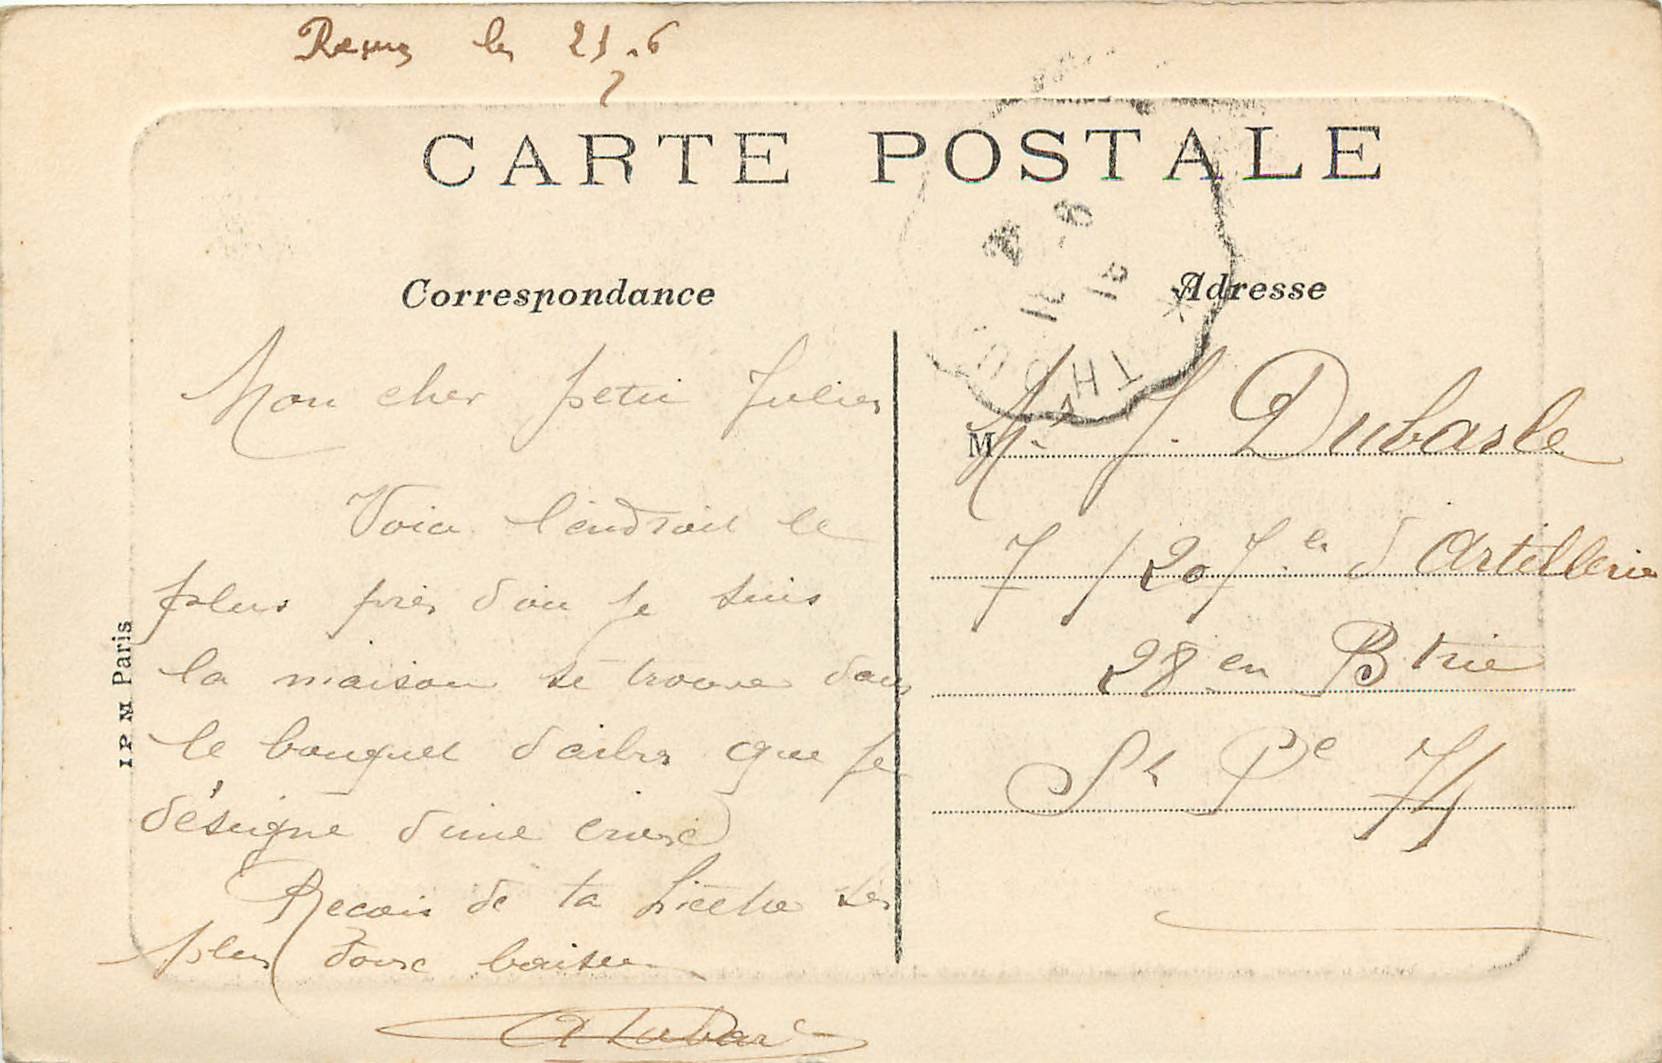 Reçu le 21.6
CARTE POSTALE
Correspondance
Mon cher petit Julien
Voici l'endroit le
plus près d'où je suis
la maison se trouve dans
le bouquet d'arbres que je
désigne d'une croix
Reçois de ta Lisette ses
plus doux baisers
Adresse
M Mr J. Dubasle
7 / 207e d'Artillerie
28 en Btrie
St Pe 74
THOU
I P M Paris